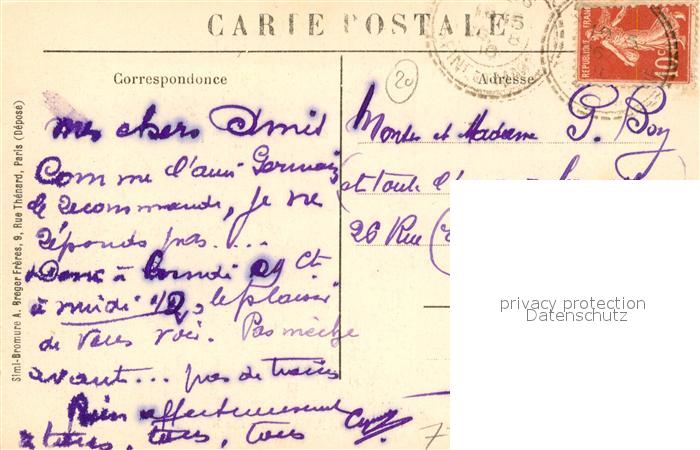 CARTE POSTALE
Correspondance
Adresse
RÉPUBLIQUE FRANÇAISE
10c
20
mes chers Amis
Comme l'ami Germain
le recommande, je ne
réponds pas....
Donc à Lundi 29 Ct
à midi 1/2, le plaisir
de vous voir. Pas mèche
avant... pas de trains
Bien affectueusement
à tous, tous, tous
Monsr et Madame P. Boy
(et toute
26 Rue
77
Simi-Bromure A. Breger Frères, 9, Rue Thénard, Paris (Déposé)
privacy protection
Datenschutz